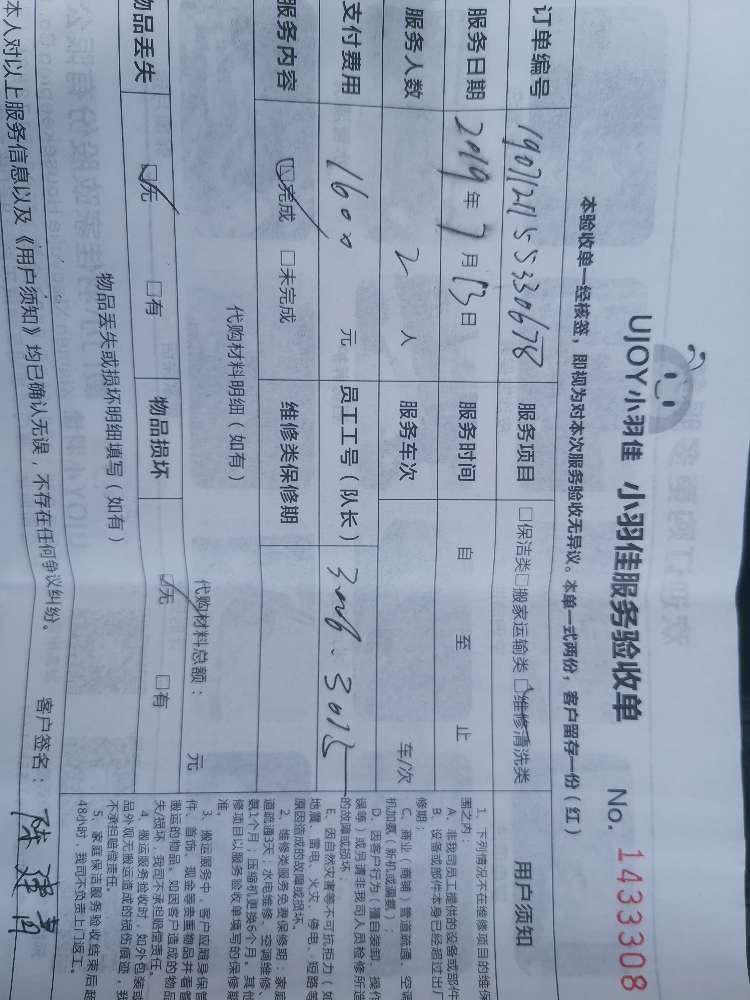 UJOY小羽佳 小羽佳服务验收单 No. 1433308
本验收单一经核签，即视为对本次服务验收无异议。本单一式两份，客户留存一份（红）
订单编号 服务项目 □保洁类□搬家运输类□维修清洗类
服务日期 2019年7月13日 服务时间 自 至 止
服务人数 2 人 服务车次 车/次
支付费用 1600 元 员工工号（队长）
服务内容 □完成 □未完成 维修类保修期
代购材料明细（如有） 代购材料总额： 元
物品丢失 □无 □有 物品损坏 □无 □有
物品丢失或损坏明细填写（如有）
本人对以上服务信息以及《用户须知》均已确认无误，不存在任何争议纠纷。 客户签名：
用户须知
1、下列情况不在维修项目的维保
围之内：
A、非我司员工提供的设备或部件
B、设备或部件本身已经超过出厂
修期；
C、商业（商铺）管道疏通、空调
机加氨（新机或漏氨）；
D、因客户行为（擅自装卸、操作
误等）或另请非我司人员检修所造
的故障或损坏；
E、因自然灾害等不可抗拒力（如
地震、雷电、火灾、停电、短路等
原因造成的故障或损坏。
2、维修类服务免费保修期：家庭
道疏通3天；水电维修、空调维修、
氨1个月；压缩机更换6个月。其他
修项目以服务验收单填写的保修期
准。
3、搬运服务中，客户应随身保管
件、首饰、现金等贵重物品并看管
搬运的物品。如因客户造成的物品
失/损坏，我司不承担赔偿责任。
4、搬运服务验收时，如外包装或
品外观无搬运造成的损伤痕迹，我
不承担赔偿责任。
5、家庭保洁服务验收结束后超
48小时，我司不负责上门返工。